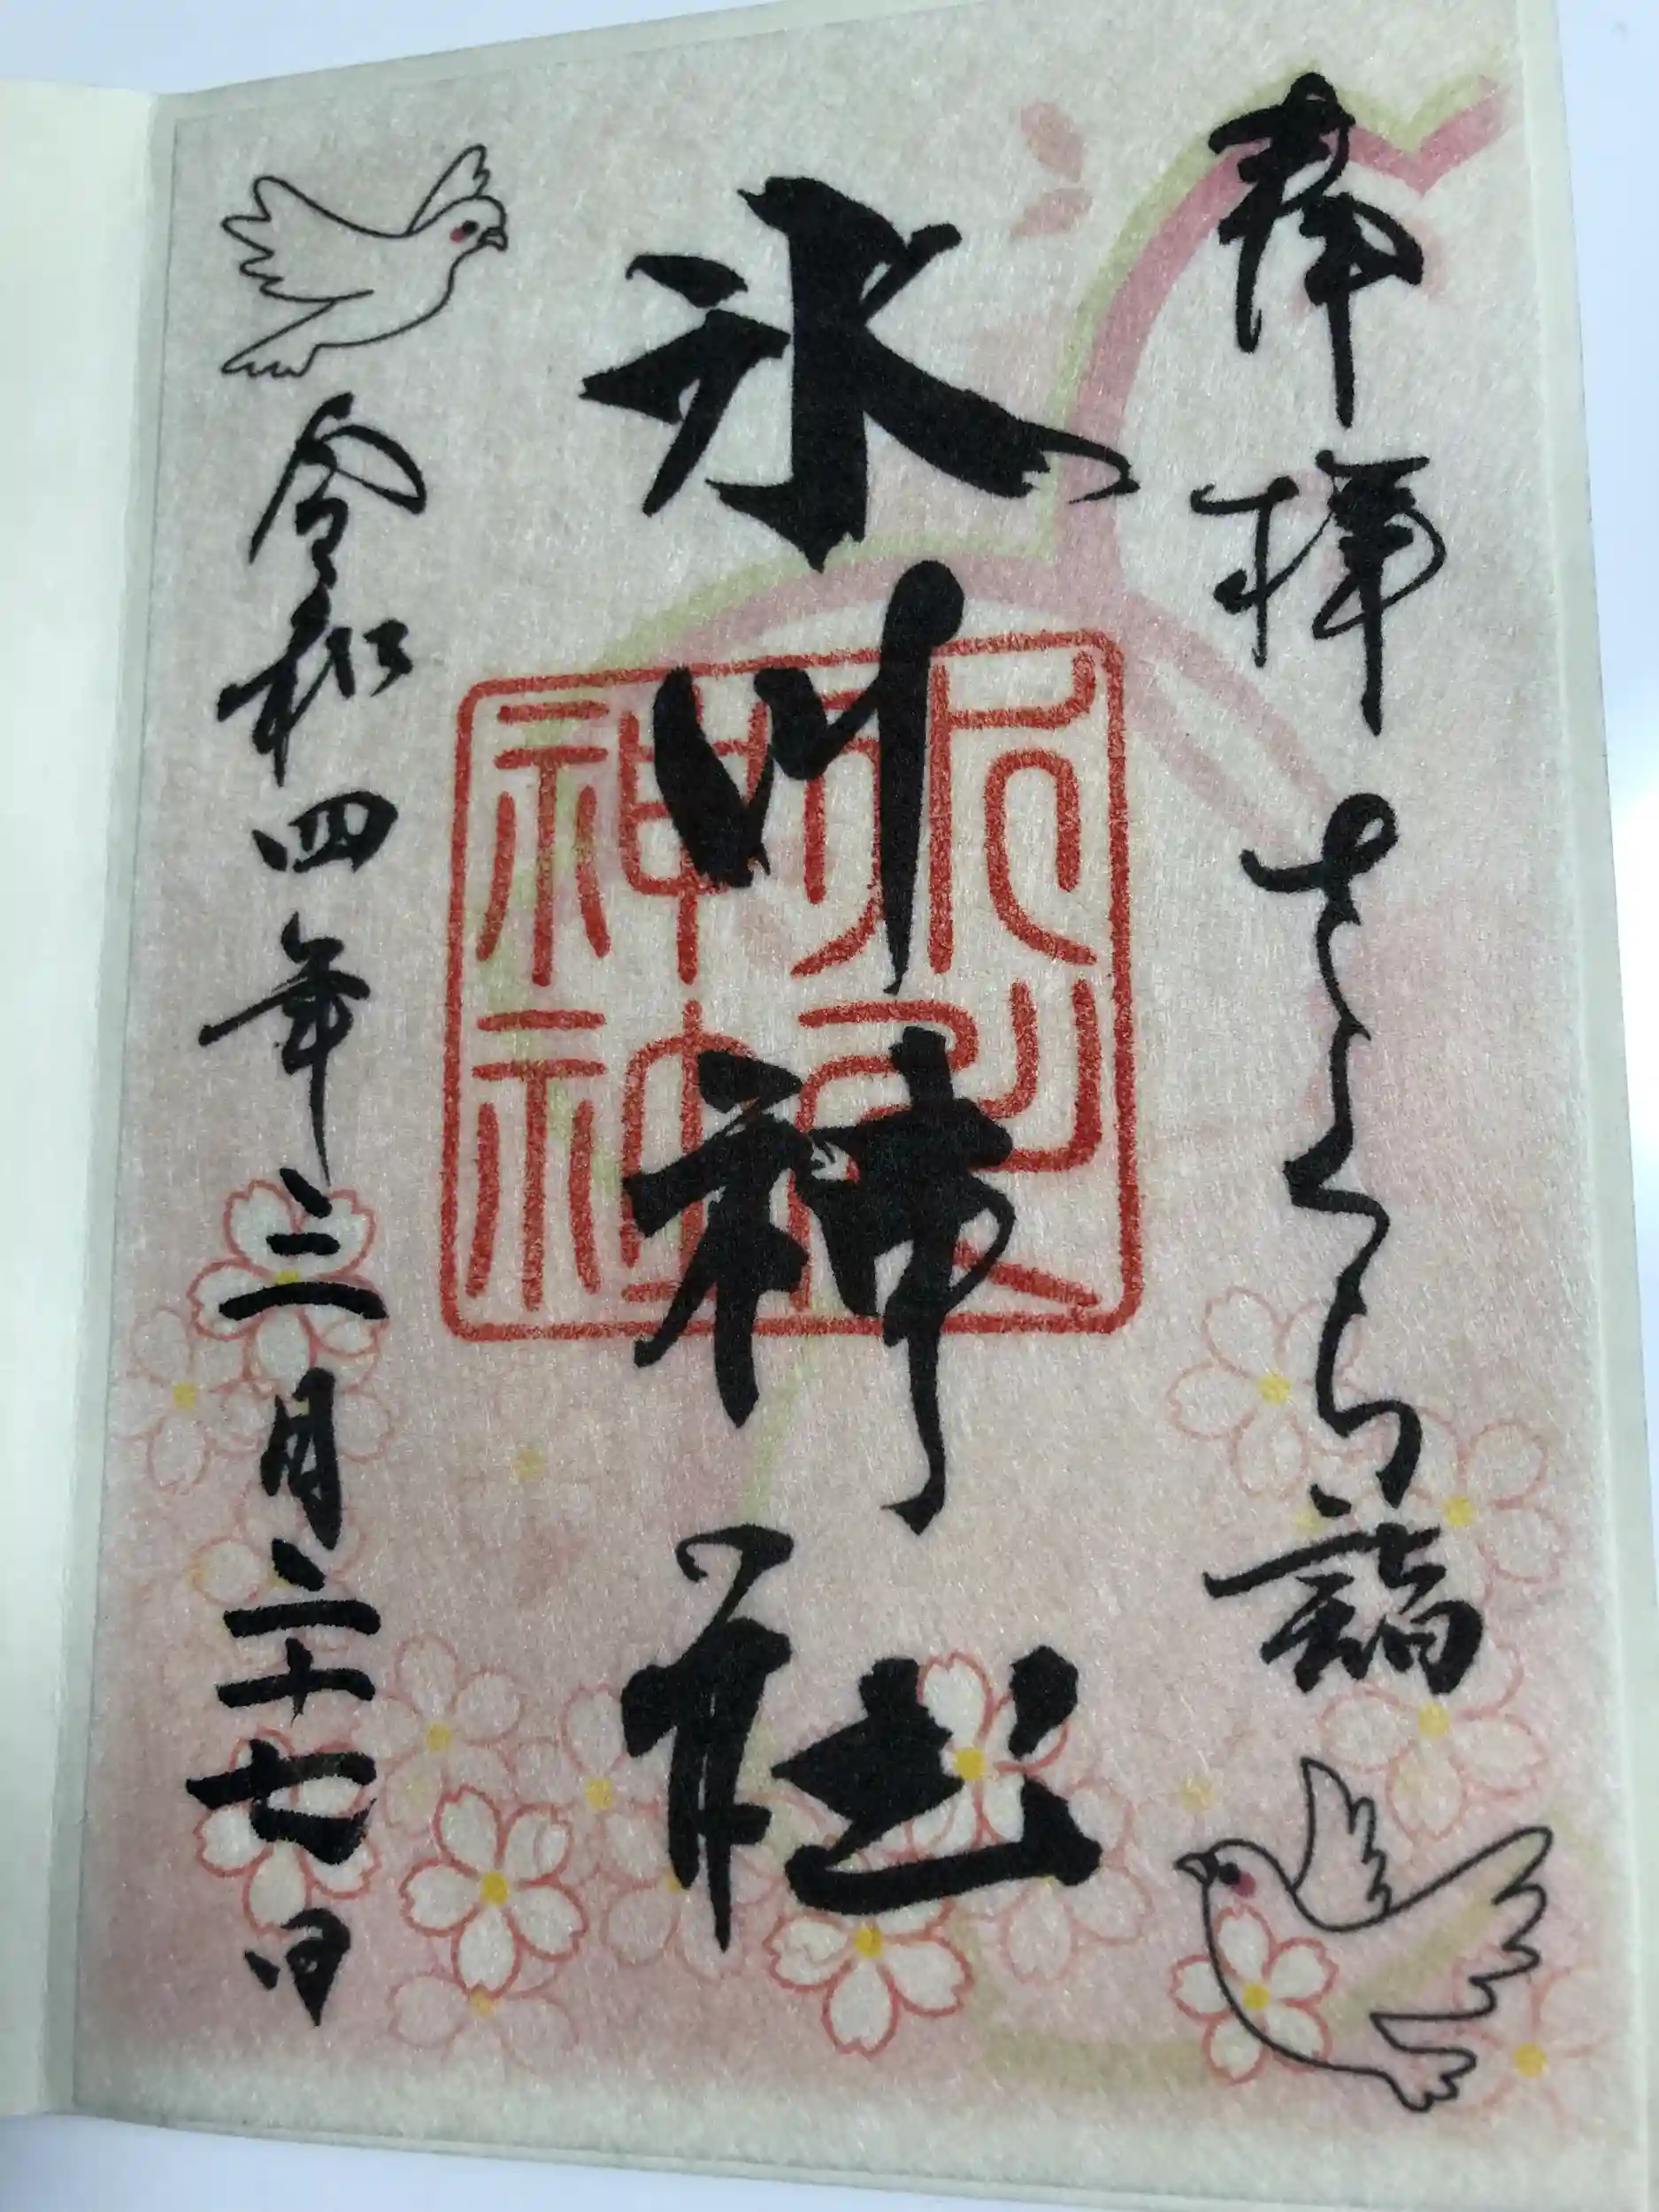 奉拝 さくら詣
氷川神社
氷川
女體
神社
令和四年三月二十七日